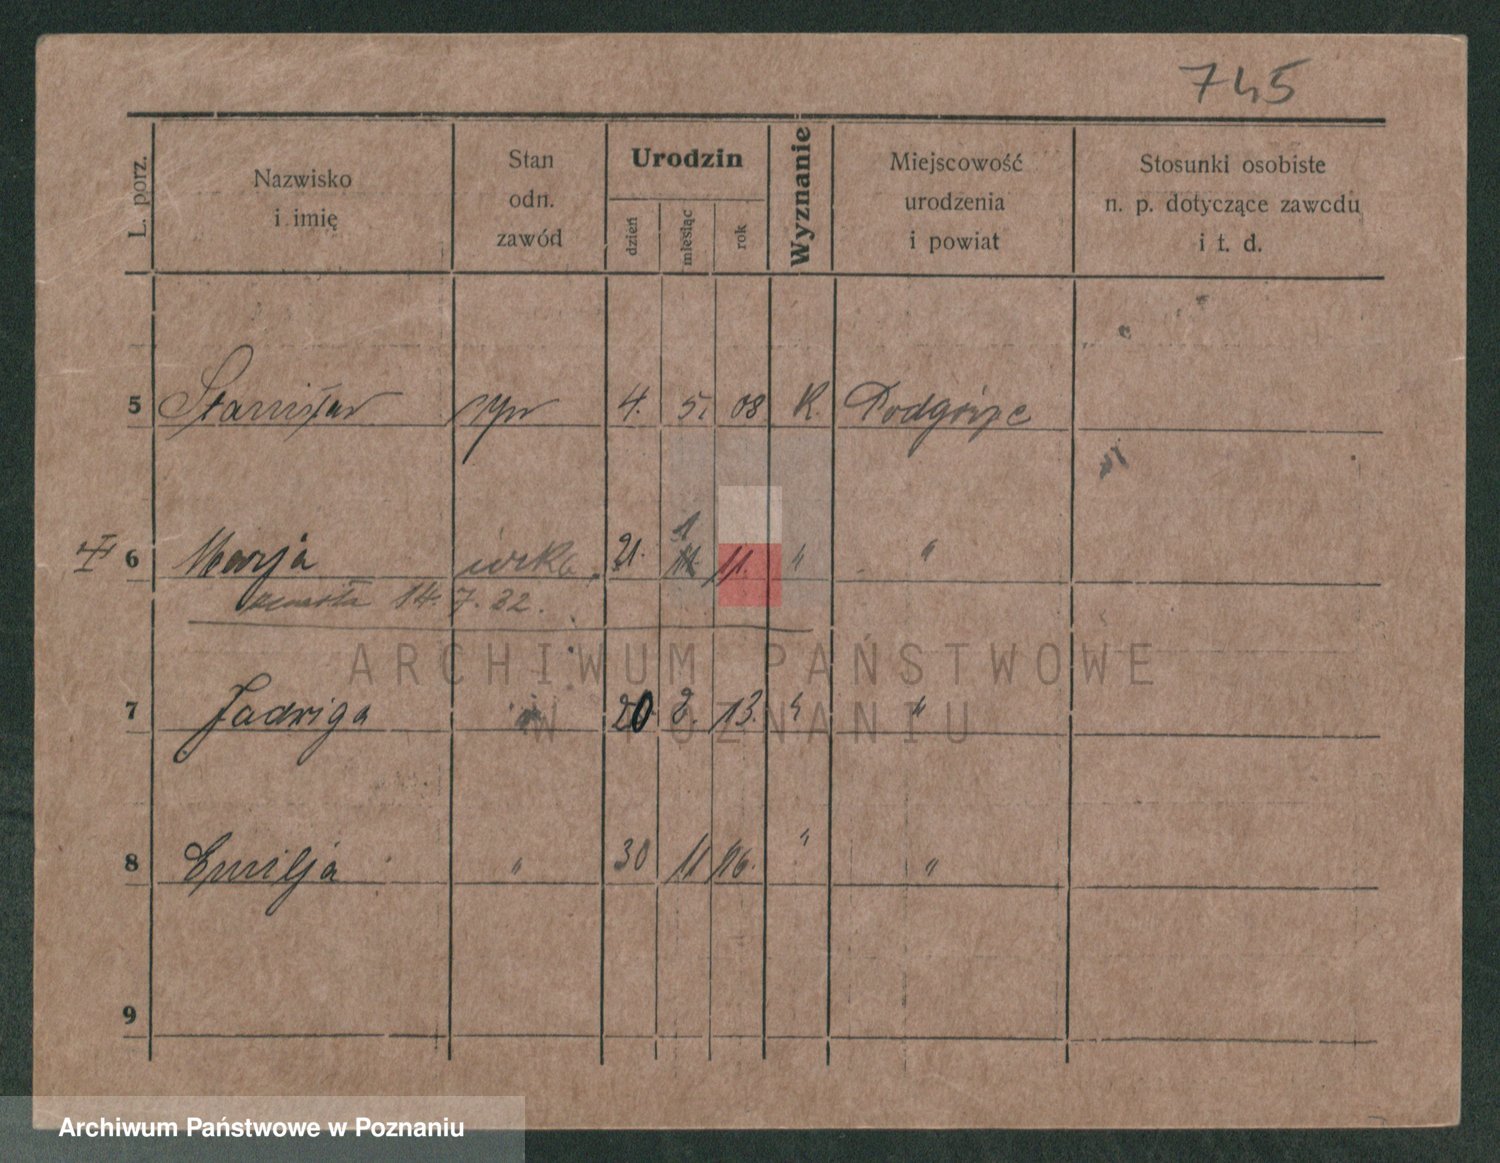 745
L. porz.
Nazwisko
i imię
Stan
odn.
zawód
Urodzin
dzień
miesiąc
rok
Wyznanie
Miejscowość
urodzenia
i powiat
Stosunki osobiste
n. p. dotyczące zawodu
i t. d.
5 Stanisław syn 4. 5. 08 R.
6 Marja córka 21. 1 11. " "
zmarła 14. 7. 32.
7 Jadwiga " 20 2. 13. " "
8 Emilja " 30 11 16. " "
9
ARCHIWUM PAŃSTWOWE
W POZNANIU
Archiwum Państwowe w Poznaniu